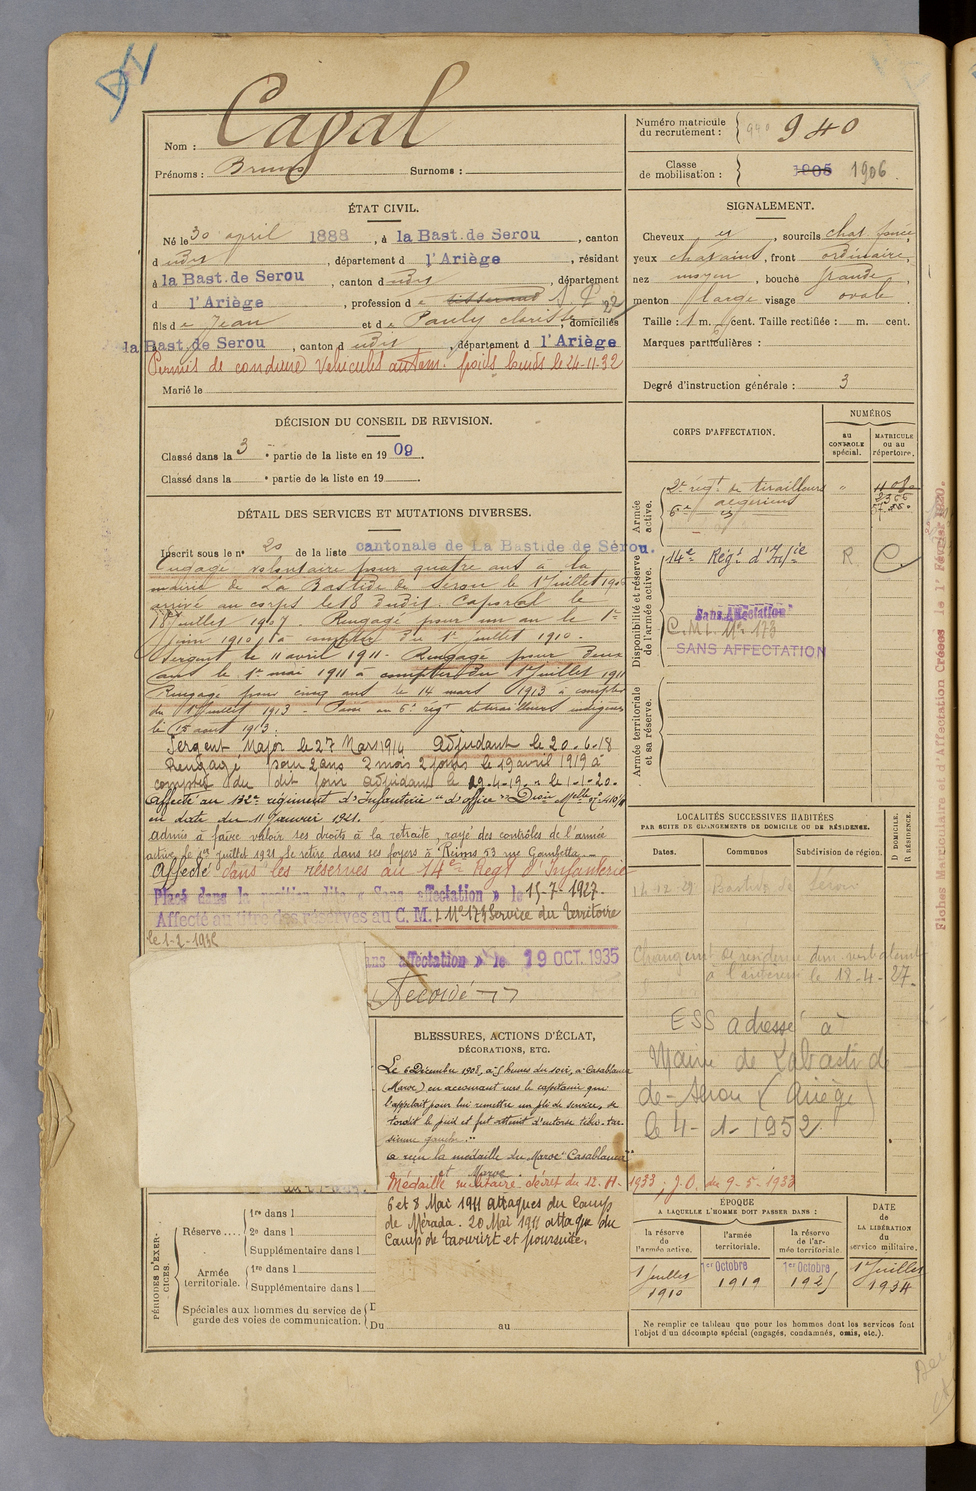 Nom : Cagal
Prénoms : Bruno Surnoms :
Numéro matricule du recrutement : 940 940
Classe de mobilisation : 1905 1906
ÉTAT CIVIL.
Né le 30 april 1888, à la Bast. de Serou, canton
d udit, département d l'Ariège, résidant
à la Bast. de Serou, canton d udit, département
d l'Ariège, profession d e tisserand
fils d e Jean et d e Pauly clarisse, domiciliés
à la Bast. de Serou, canton d udit, département d l'Ariège
Permis de conduire Vehicules autom. poids lourds le 24-11-32
Marié le
SIGNALEMENT.
Cheveux et, sourcils chat. foncé,
yeux chatains, front ordinaire,
nez moyen, bouche grande,
menton large visage ovale.
Taille : 1 m. cent. Taille rectifiée : m. cent.
Marques particulières :
Degré d'instruction générale : 3
DÉCISION DU CONSEIL DE REVISION.
Classé dans la 3e partie de la liste en 1909.
Classé dans la e partie de la liste en 19
DÉTAIL DES SERVICES ET MUTATIONS DIVERSES.
Inscrit sous le n° 20 de la liste cantonale de La Bastide de Sérou.
Engagé volontaire pour quatre ans à la
mairie de La Bastide de Serou le 1er Juillet 1906
arrivé au corps le 18 dudit. Caporal le
18 Juillet 1907 Rengagé pour un an le 1er
Juin 1910, à compter du 1er Juillet 1910.
Sergent le 11 avril 1911. Rengagé pour deux
ans le 1er mai 1911 à compter du 1er Juillet 1911
Rengagé pour cinq ans le 14 mars 1913 à compter
du 1er Juillet 1913 - Passé au 6e régt de tirailleurs indigènes
le 15 août 1913.
Sergent Major le 27 Mars 1914 Adjudant le 20.6.18
Rengagé pour 2 ans 2 mois 2 jours le 19 avril 1919 à
compter du dit jour adjudant le 29-4-19. le 1-1-20.
Affecté au 132e régiment d'Infanterie "d'office"
en date du 11 Janvier 1921.
admis à faire valoir ses droits à la retraite, rayé des contrôles de l'armée
active le 1er juillet 1921, se retire dans ses foyers à Reims 53 rue Gambetta
Affecté dans les réserves au 14e Régt d'Infanterie
Placé dans la position dite « Sans affectation » le 15-7-1927
Affecté au titre des réserves au C. M. I. N° 173 Service du Territoire
le 1-2-1932
ans affectation » le 19 OCT. 1935
CORPS D'AFFECTATION.
NUMÉROS
au CONTROLE spécial.
MATRICULE ou au répertoire.
Armée active.
2e régt de tirailleurs algériens
6e
Disponibilité et réserve de l'armée active.
14e Régt d'Inf/ie R
Sans Affectation
C.M.I. N° 173
SANS AFFECTATION
Armée territoriale et sa réserve.
LOCALITÉS SUCCESSIVES HABITÉES
PAR SUITE DE CHANGEMENTS DE DOMICILE OU DE RÉSIDENCE.
D DOMICILE. R RÉSIDENCE.
Dates. Communes Subdivision de région.
Bastide de Sérou
Changemt de residence
le 18-4-27.
ESS adressé à
Maire de Labastide
de-Serou (Ariège)
le 4-1-1952
BLESSURES, ACTIONS D'ÉCLAT,
DÉCORATIONS, ETC.
Le 6 Décembre 1908, à 5 heures du soir, à Casablanca
(Maroc) en accourant vers le capitaine qui
l'appelait pour lui remettre un pli de service, se
tordit le pied et fut atteint d'entorse tibio-tar-
sienne gauche."
a reçu la médaille du Maroc "Casablanca"
et Maroc.
Médaille militaire décret du 12-4-1933; J.O. du 9-5-1933
6 et 8 Mai 1911 attaques du Camp
de Mérada. 20 Mai 1911 attaque du
Camp de Taourirt et poursuite.
PÉRIODES D'EXERCICES.
Réserve.... 1re dans l
2e dans l
Supplémentaire dans l
Armée territoriale. 1re dans l
Supplémentaire dans l
Spéciales aux hommes du service de garde des voies de communication.
Du au
ÉPOQUE
A LAQUELLE L'HOMME DOIT PASSER DANS :
la réserve de l'armée active.
l'armée territoriale.
la réserve de l'armée territoriale.
DATE de LA LIBÉRATION du service militaire.
1 Juillet 1910
1er Octobre 1919
1er Octobre 1925
1er Juillet 1934
Ne remplir ce tableau que pour les hommes dont les services font
l'objet d'un décompte spécial (engagés, condamnés, omis, etc.).
Fiches Matriculaire et d'Affectation Créées le 1er Février 1920.